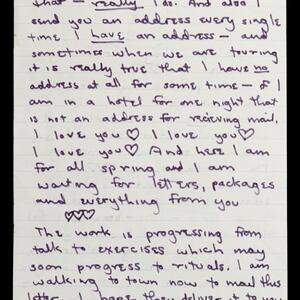 that — really I do. And also I
send you an address every single
time I have an address — and
sometimes when we are touring
it is really true that I have no
address at all for some time — if I
am in a hotel for one night that
is not an address for recieving mail.
I love you ♡ I love you ♡
I love you ♡ And here I am
for all spring and I am
waiting for letters, packages
and everything from you
♡♡♡
The work is progressing from
talk to exercises which may
soon progress to rituals. I am
walking to town now to mail this
letter. I hope they deliver it to you